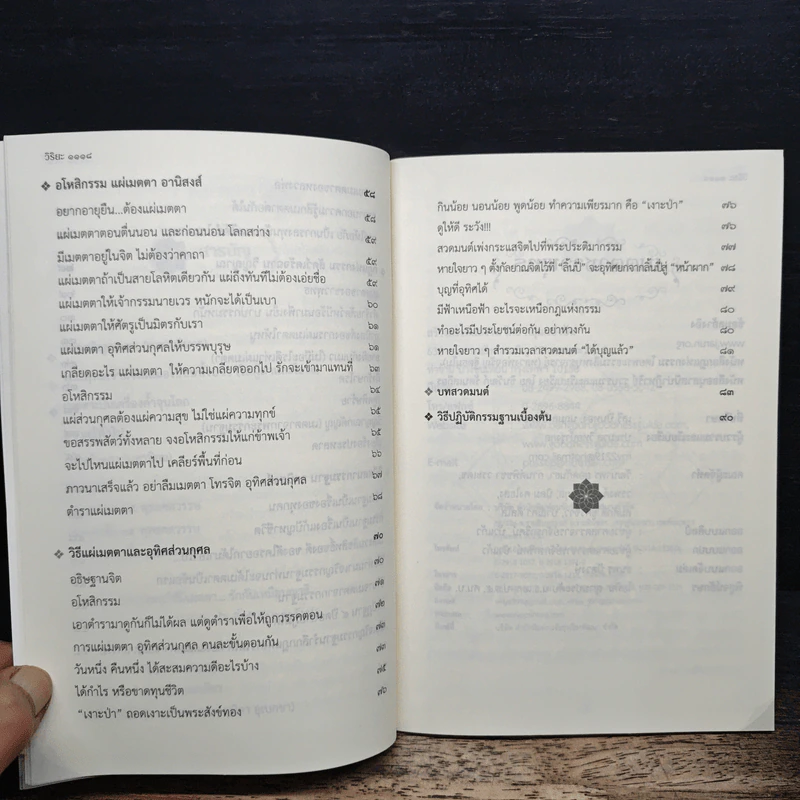 วิริยะ ๑๑๑๘
❖ อโหสิกรรม แผ่เมตตา อานิสงส์ ๕๘
อยากอายุยืน...ต้องแผ่เมตตา ๕๘
แผ่เมตตาตอนตื่นนอน และก่อนนอน โลกสว่าง ๕๙
มีเมตตาอยู่ในจิต ไม่ต้องว่าคาถา ๕๙
แผ่เมตตาถ้าเป็นสายโลหิตเดียวกัน แผ่ถึงทันทีไม่ต้องเอ่ยชื่อ ๕๙
แผ่เมตตาให้เจ้ากรรมนายเวร หนักจะได้เป็นเบา ๖๐
แผ่เมตตาให้ศัตรูเป็นมิตรกับเรา ๖๑
แผ่เมตตา อุทิศส่วนกุศลให้บรรพบุรุษ ๖๑
เกลียดอะไร แผ่เมตตา ให้ความเกลียดออกไป รักจะเข้ามาแทนที่ ๖๓
อโหสิกรรม
แผ่ส่วนกุศลต้องแผ่ความสุข ไม่ใช่แผ่ความทุกข์ ๖๕
ขอสรรพสัตว์ทั้งหลาย จงอโหสิกรรมให้แก่ข้าพเจ้า ๖๕
จะไปไหนแผ่เมตตาไป เคลียร์พื้นที่ก่อน ๖๖
ภาวนาเสร็จแล้ว อย่าลืมเมตตา โทรจิต อุทิศส่วนกุศล ๖๗
ตำราแผ่เมตตา ๖๘
❖ วิธีแผ่เมตตาและอุทิศส่วนกุศล ๗๐
อธิษฐานจิต ๗๐
อโหสิกรรม ๗๑
เอาตำรามาดูกันก็ไม่ได้ผล แต่ดูตำราเพื่อให้ถูกวรรคตอน ๗๒
การแผ่เมตตา อุทิศส่วนกุศล คนละขั้นตอนกัน ๗๓
วันหนึ่ง คืนหนึ่ง ได้สะสมความดีอะไรบ้าง ๗๓
ได้กำไร หรือขาดทุนชีวิต ๗๕
"เงาะป่า" ถอดเงาะเป็นพระสังข์ทอง ๗๖
กินน้อย นอนน้อย พูดน้อย ทำความเพียรมาก คือ "เงาะป่า" ๗๖
ดูให้ดี ระวัง!!! ๗๖
สวดมนต์เพ่งกระแสจิตไปที่พระประติมากรรม ๗๗
หายใจยาว ๆ ตั้งกัลยาณจิตไว้ที่ "ลิ้นปี่" จะอุทิศยกจากลิ้นปี่สู่ "หน้าผาก" ๗๘
บุญที่อุทิศได้ ๗๙
มีฟ้าเหนือฟ้า อะไรจะเหนือกฎแห่งกรรม ๘๐
ทำอะไรมีประโยชน์ต่อกัน อย่าหวงกัน ๘๐
หายใจยาว ๆ สำรวมเวลาสวดมนต์ "ได้บุญแล้ว" ๘๑
❖ บทสวดมนต์ ๘๓
❖ วิธีปฏิบัติกรรมฐานเบื้องต้น ๙๐